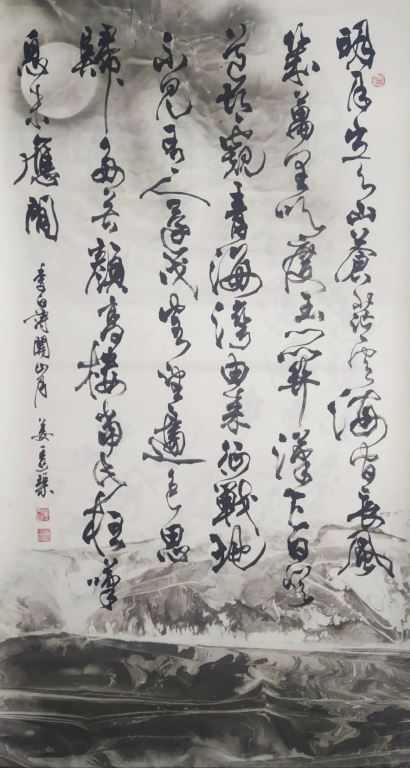 明月出天山蒼茫雲海間長風
幾萬里吹度玉門關漢下白登
道胡窺青海灣由來征戰地
不見有人還戍客望邊色思
歸多苦顏高樓當此夜嘆
息未應閒
李白詩關山月 姜